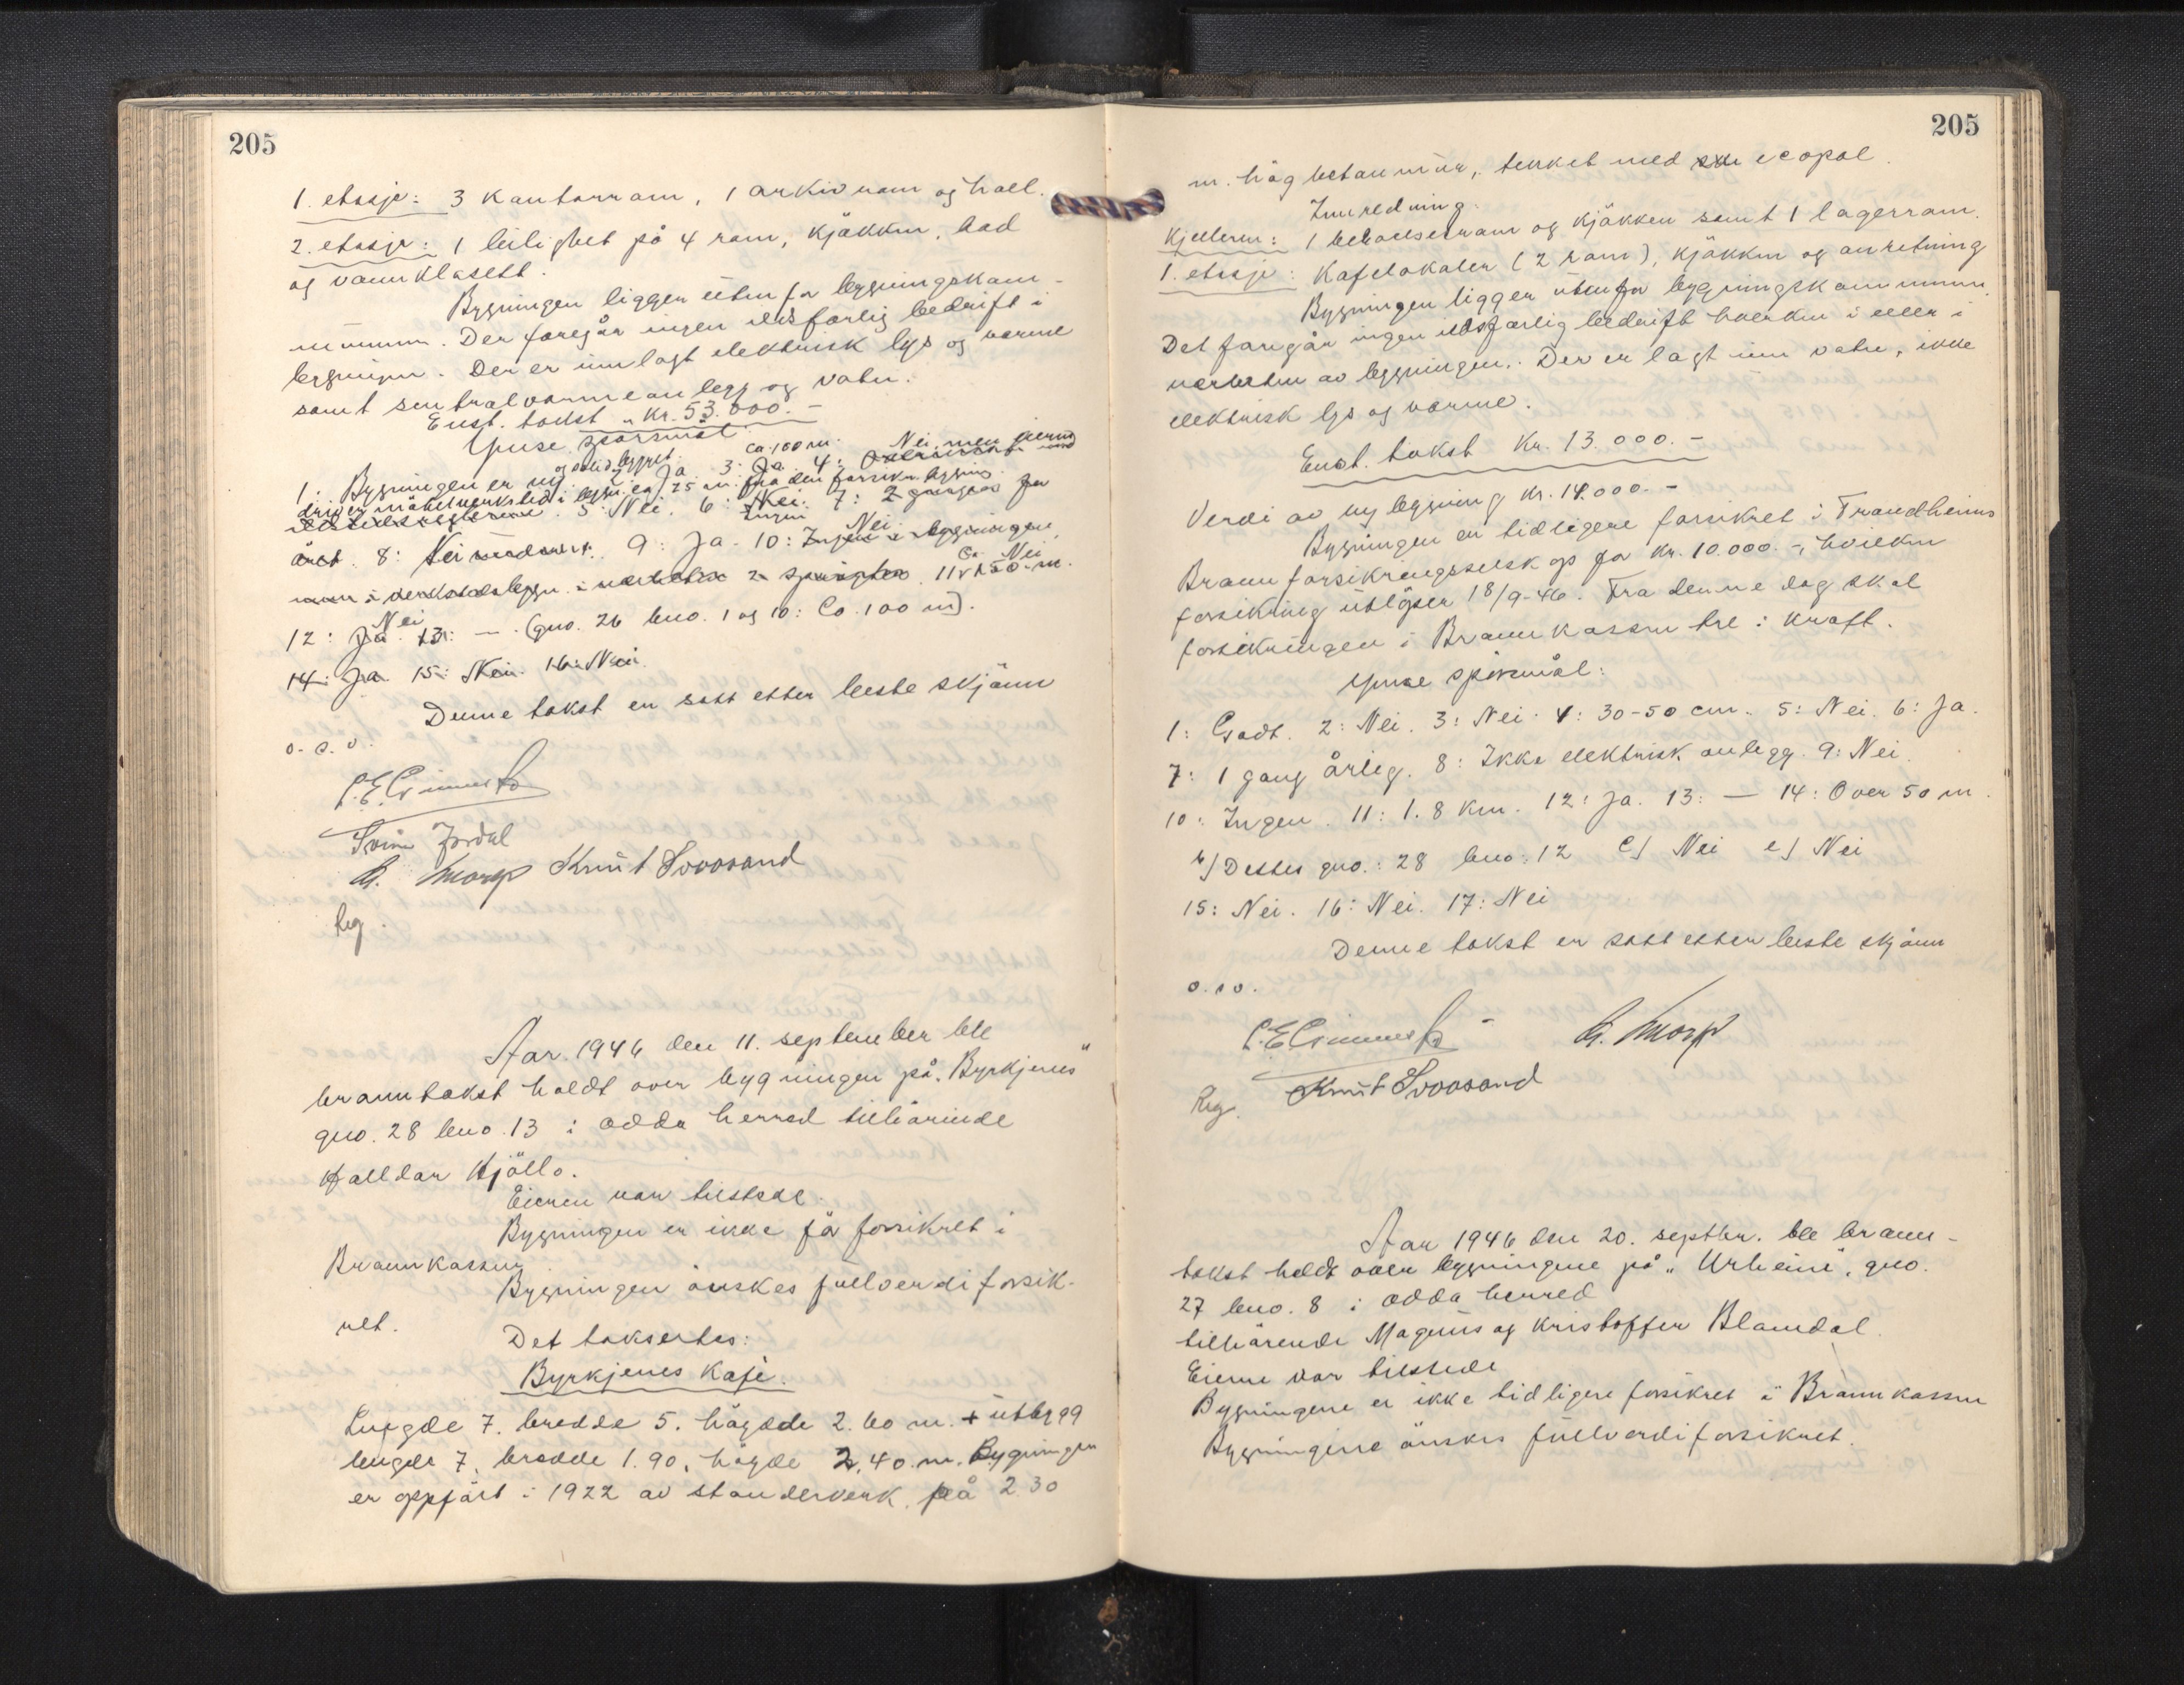 205
1. etasje: 3 kontorrom, 1 arkivrom og hall.
2. etasje: 1 leilighet på 4 rom, kjøkken, bad
og vannklosett.
Bygningen ligger utenfor bygningskom-
munen. Der foregår ingen ildsfarlig bedrift i
bygningen. Der er innlagt elektrisk lys og varme
samt sentralvarmeanlegg og vatn.
Enst. takst kr. 53.000.-
Ymse spørsmål.
1: Bygningen er ny og solid bygget. Ja. 3: Ja. ca. 100 m. 4: Nei, men eieren
driver møbelverksted i bygn. ca. 25 m. fra den forsikr. bygning
5: Nei. 6: Nei. Ingen 7: 2 ganger for
året. 8: Nei 9: Ja. 10: Nei.
i verkstedsbygn. 11: Ca. 150 m. Nei
12: Ja. Nei 13: — (gno. 26 bno. 1 og 10: Ca. 100 m).
14: Ja. 15: Nei. 16: Nei.
Denne takst er satt etter beste skjønn
o. s. v.
Svein Jordal
G. Knut Svoosand
Reg.
Aar 1946 den 11. september ble
branntakst holdt over bygningen på „Byrkjenes"
gno. 28 bno. 13 i Odda herred tilhørende
Halldor Hjøllo.
Eieren var tilstede.
Bygningen er ikke før forsikret i
Brannkassen.
Bygningen ønskes fullverdiforsik-
ret.
Det taksertes:
Byrkjenes Kafe.
Lengde 7. bredde 5. høgde 2.60 m. + utbygg
lengde 7, bredde 1.90, høgde 2,40. m. Bygningen
er oppført i 1922 av standerverk, på 2.30
205
m. høg betonmur, tekket med icopal.
Innredning.
Kjelleren: 1 beboelsesrom og kjøkken samt 1 lagerrom.
1. etasje: Kafelokaler (2 rom), kjøkken og anretning
Bygningen ligger utenfor bygningskommunen.
Det foregår ingen ildsfarlig bedrift hverken i eller i
nærheten av bygningen. Der er lagt inn vatn, ikke
elektrisk lys og varme.
Enst. takst kr. 13.000.-
Verdi av ny bygning kr. 14.000.-
Bygningen er tidligere forsikret i Trondheims
Brannforsikringsselskap for kr. 10.000.-, hvilken
forsikring utløper 18/9-46. Fra denne dag skal
forsikringen i Brannkassen tre i kraft.
Ymse spørsmål:
1: Godt. 2: Nei. 3: Nei. 4: 30-50 cm. 5: Nei. 6: Ja.
7: 1 gang årlig. 8: Ikke elektrisk anlegg. 9: Nei.
10: Ingen. 11: 1.8 km. 12: Ja. 13: — 14: Over 50 m.
b) Dettes gno.: 28 bno: 12 c) Nei e) Nei
15: Nei. 16: Nei. 17: Nei
Denne takst er satt etter beste skjønn
o. s. v.
Knut Svoosand
Reg.
Aar 1946 den 20. septbr. ble brann-
takst holdt over bygningene på „Urheim", gno.
27 bno. 8 i Odda herred
tilhørende Magnus og Kristoffer Blamdal.
Eierne var tilstede
Bygningene er ikke tidligere forsikret i Brannkassen
Bygningene ønskes fullverdiforsikret.